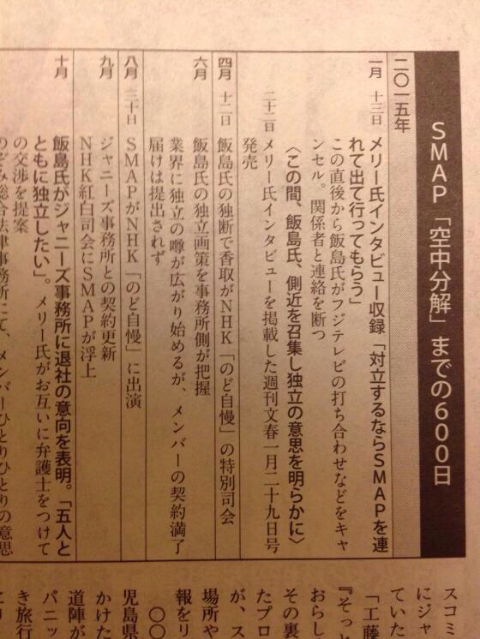 SMAP「空中分解」までの600日
二〇一五年
一月 十三日 メリー氏インタビュー収録「対立するならSMAPを連
れて出て行ってもらう」
この直後から飯島氏がフジテレビの打ち合わせなどをキャ
ンセル。関係者と連絡を断つ
〈この間、飯島氏、側近を召集し独立の意思を明らかに〉
二十二日 メリー氏インタビューを掲載した週刊文春一月二十九日号
発売
四月 十二日 飯島氏の独断で香取がNHK「のど自慢」の特別司会
六月 飯島氏の独立画策を事務所側が把握
業界に独立の噂が広がり始めるが、メンバーの契約満了
届けは提出されず
八月 三十日 SMAPがNHK「のど自慢」に出演
九月 ジャニーズ事務所との契約更新
NHK紅白司会にSMAPが浮上
十月 飯島氏がジャニーズ事務所に退社の意向を表明。「五人と
ともに独立したい」。メリー氏がお互いに弁護士をつけて
の交渉を提案
のぞみ総合法律事務所にて、メンバーひとりひとりの意思
スコミ
にジャ
ていた
「工藤
『そっ
おらし
その裏
たプロ
が、ス
場所や
報をリ
〇〇
児島県
かけた
道陣が
パニッ
き旅行